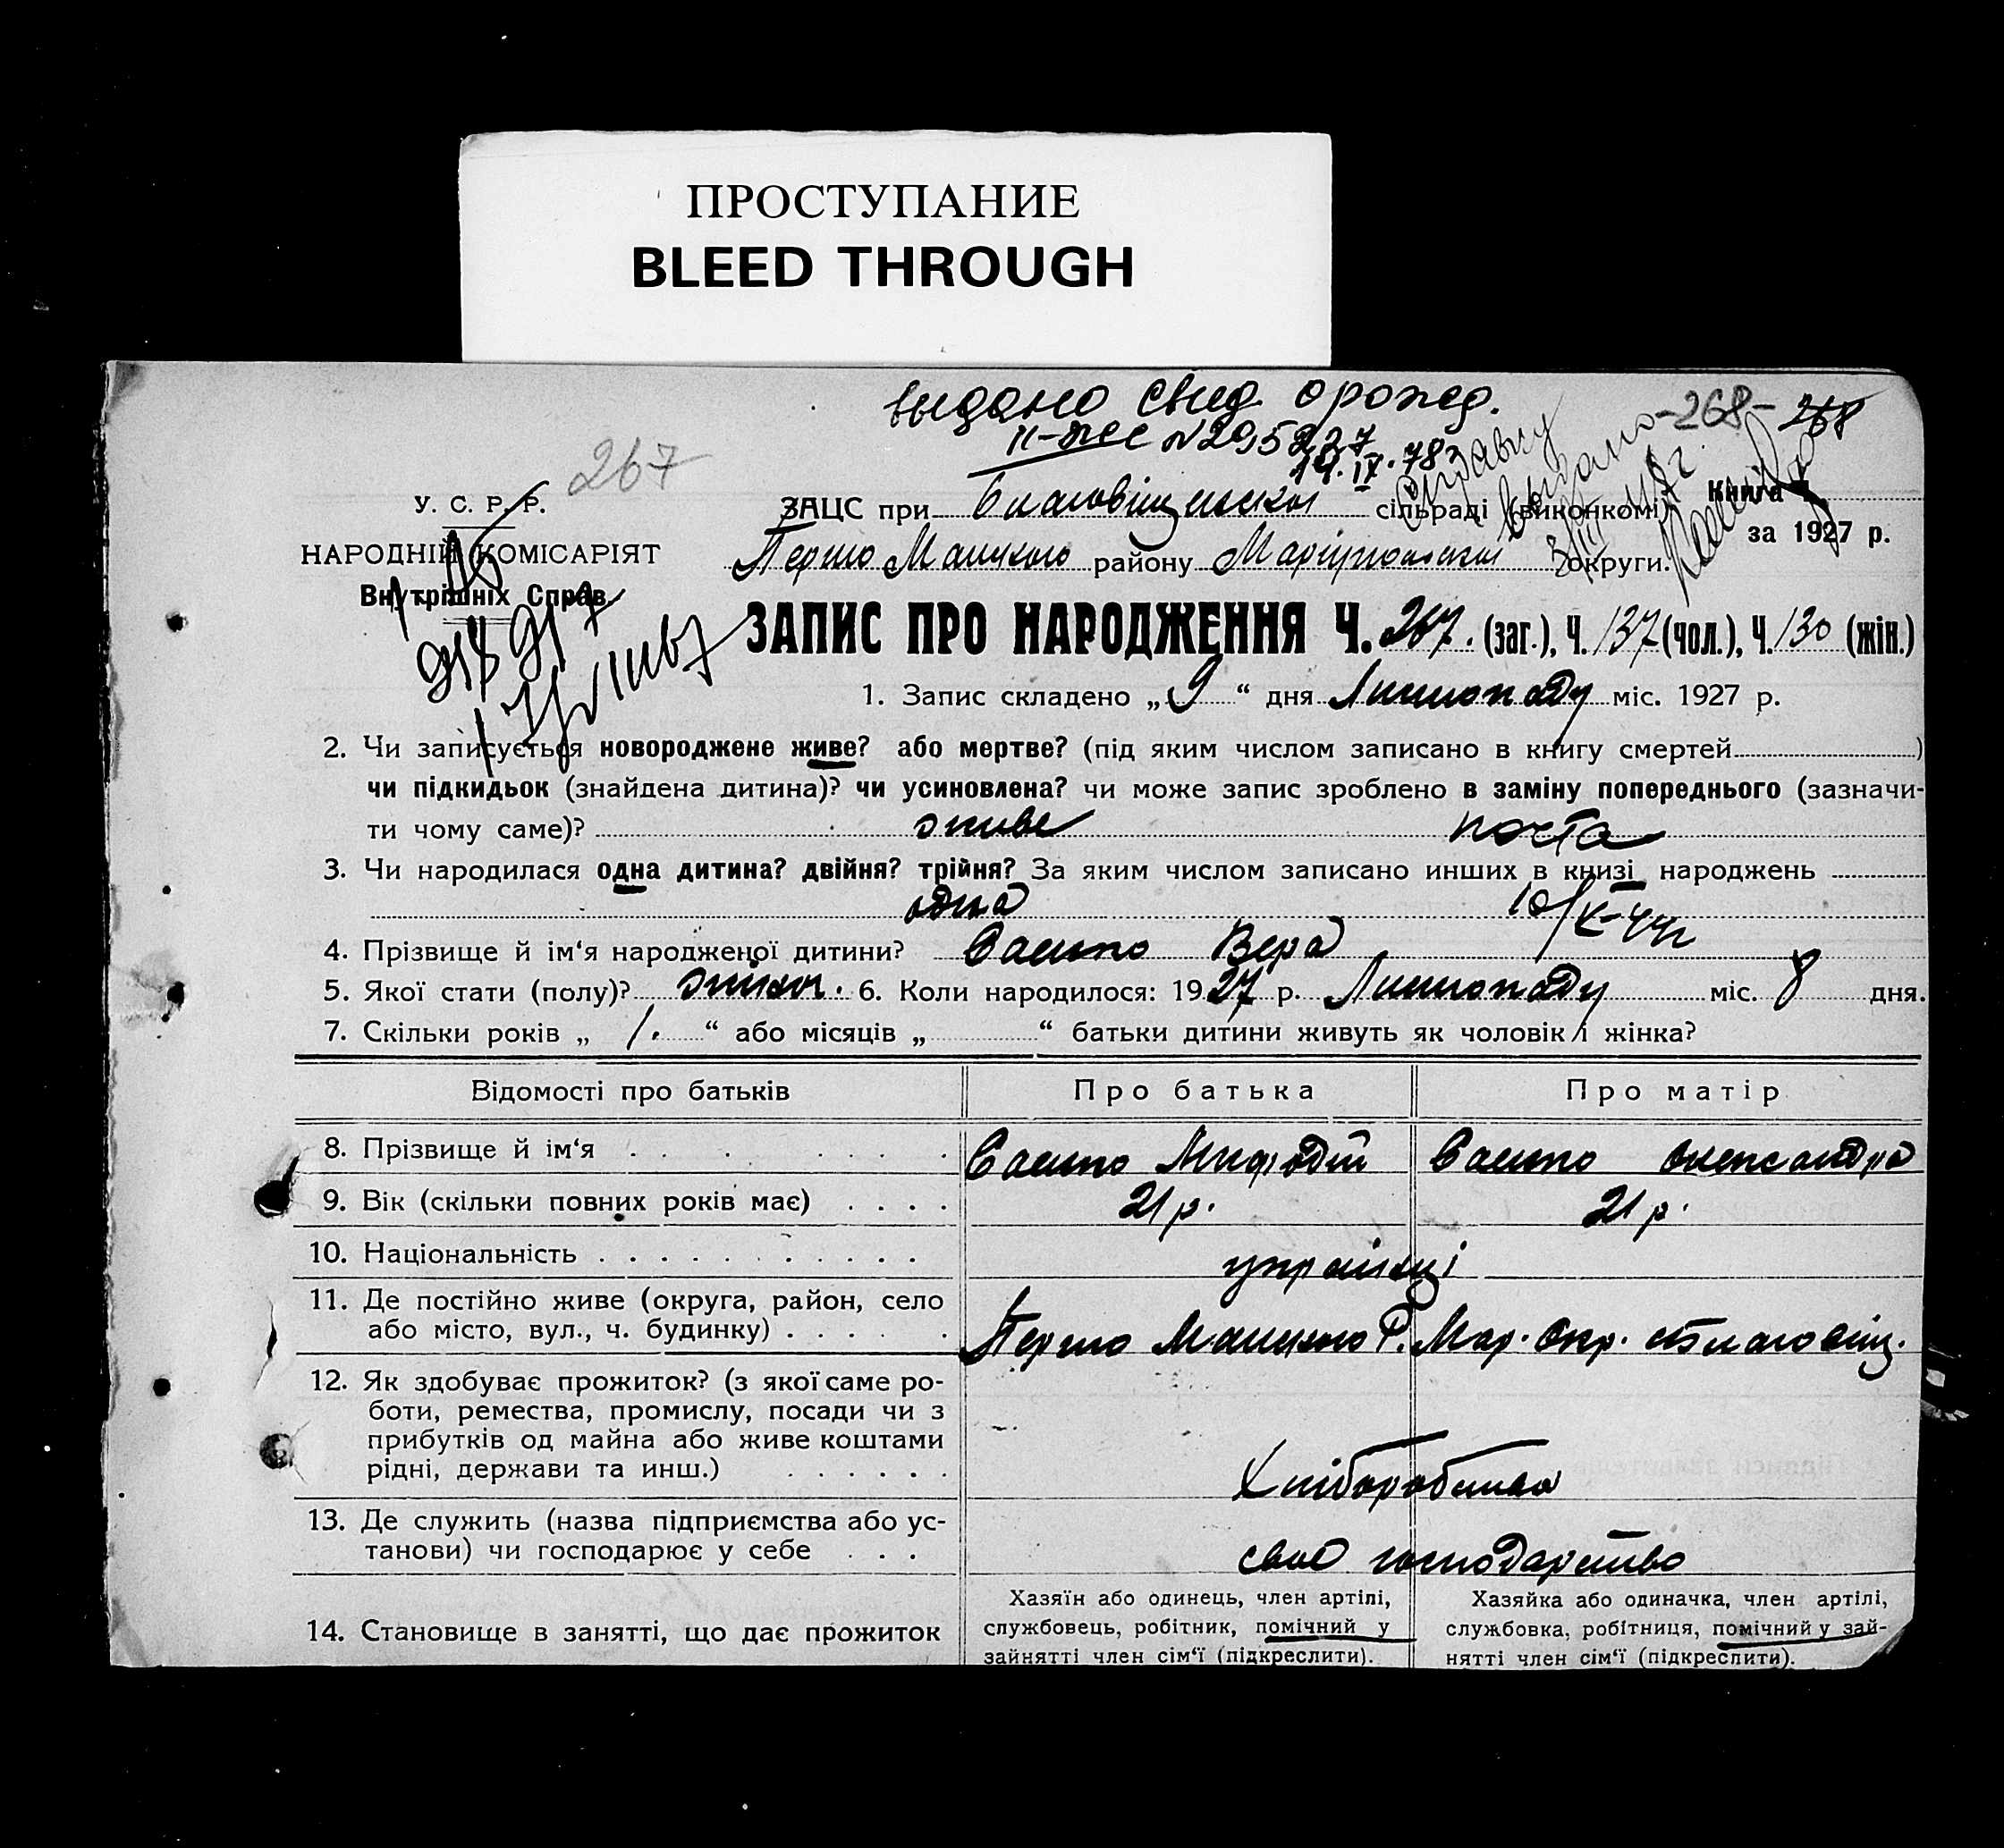 ПРОСТУПАНИЕ
BLEED THROUGH
выдано свид. о рожд.
II-ЖС №295227
14.IV.78
-268- 268
267
Справку
выдано
У. С. Р. Р.
НАРОДНІЙ КОМІСАРІЯТ
Внутрішніх Справ.
ЗАЦС при Благовіщенской сільраді (виконкомі)
Книга Ч.
за 1927 р.
Першо Манського району Маріупольской округи.
ЗАПИС ПРО НАРОДЖЕННЯ Ч. 267. (заг.), Ч. 137 (чол.), Ч. 130 (жін.)
1. Запис складено „ 9 “ дня Листопаду міс. 1927 р.
2. Чи записується новороджене живе? або мертве? (під яким числом записано в книгу смертей )
чи підкидьок (знайдена дитина)? чи усиновлена? чи може запис зроблено в заміну попереднього (зазначи-
ти чому саме)? живе
3. Чи народилася одна дитина? двійня? трійня? За яким числом записано инших в книзі народжень
одна
4. Прізвище й ім‘я народженої дитини? Вера
5. Якої стати (полу)? жіноч. 6. Коли народилося: 1927 р. Листопаду міс. 8 дня.
7. Скільки років „ 1. “ або місяців „ “ батьки дитини живуть як чоловік і жінка?
Відомості про батьків Про батька Про матір
8. Прізвище й ім‘я Мифодій Олександра
9. Вік (скільки повних років має) 21 р. 21 р.
10. Національність українці
11. Де постійно живе (округа, район, село
або місто, вул., ч. будинку) Першо Манського Р. Мар. Окр. с Благовіщ.
12. Як здобуває прожиток? (з якої саме ро-
боти, ремества, промислу, посади чи з
прибутків од майна або живе коштами
рідні, держави та инш.) Хліборобство
13. Де служить (назва підприємства або ус-
танови) чи господарює у себе своє господарство
14. Становище в занятті, що дає прожиток
Хазяїн або одинець, член артілі,
службовець, робітник, помічний у
зайнятті член сім‘ї (підкреслити).
Хазяйка або одиначка, член артілі,
службовка, робітниця, помічний у зай-
нятті член сім‘ї (підкреслити).